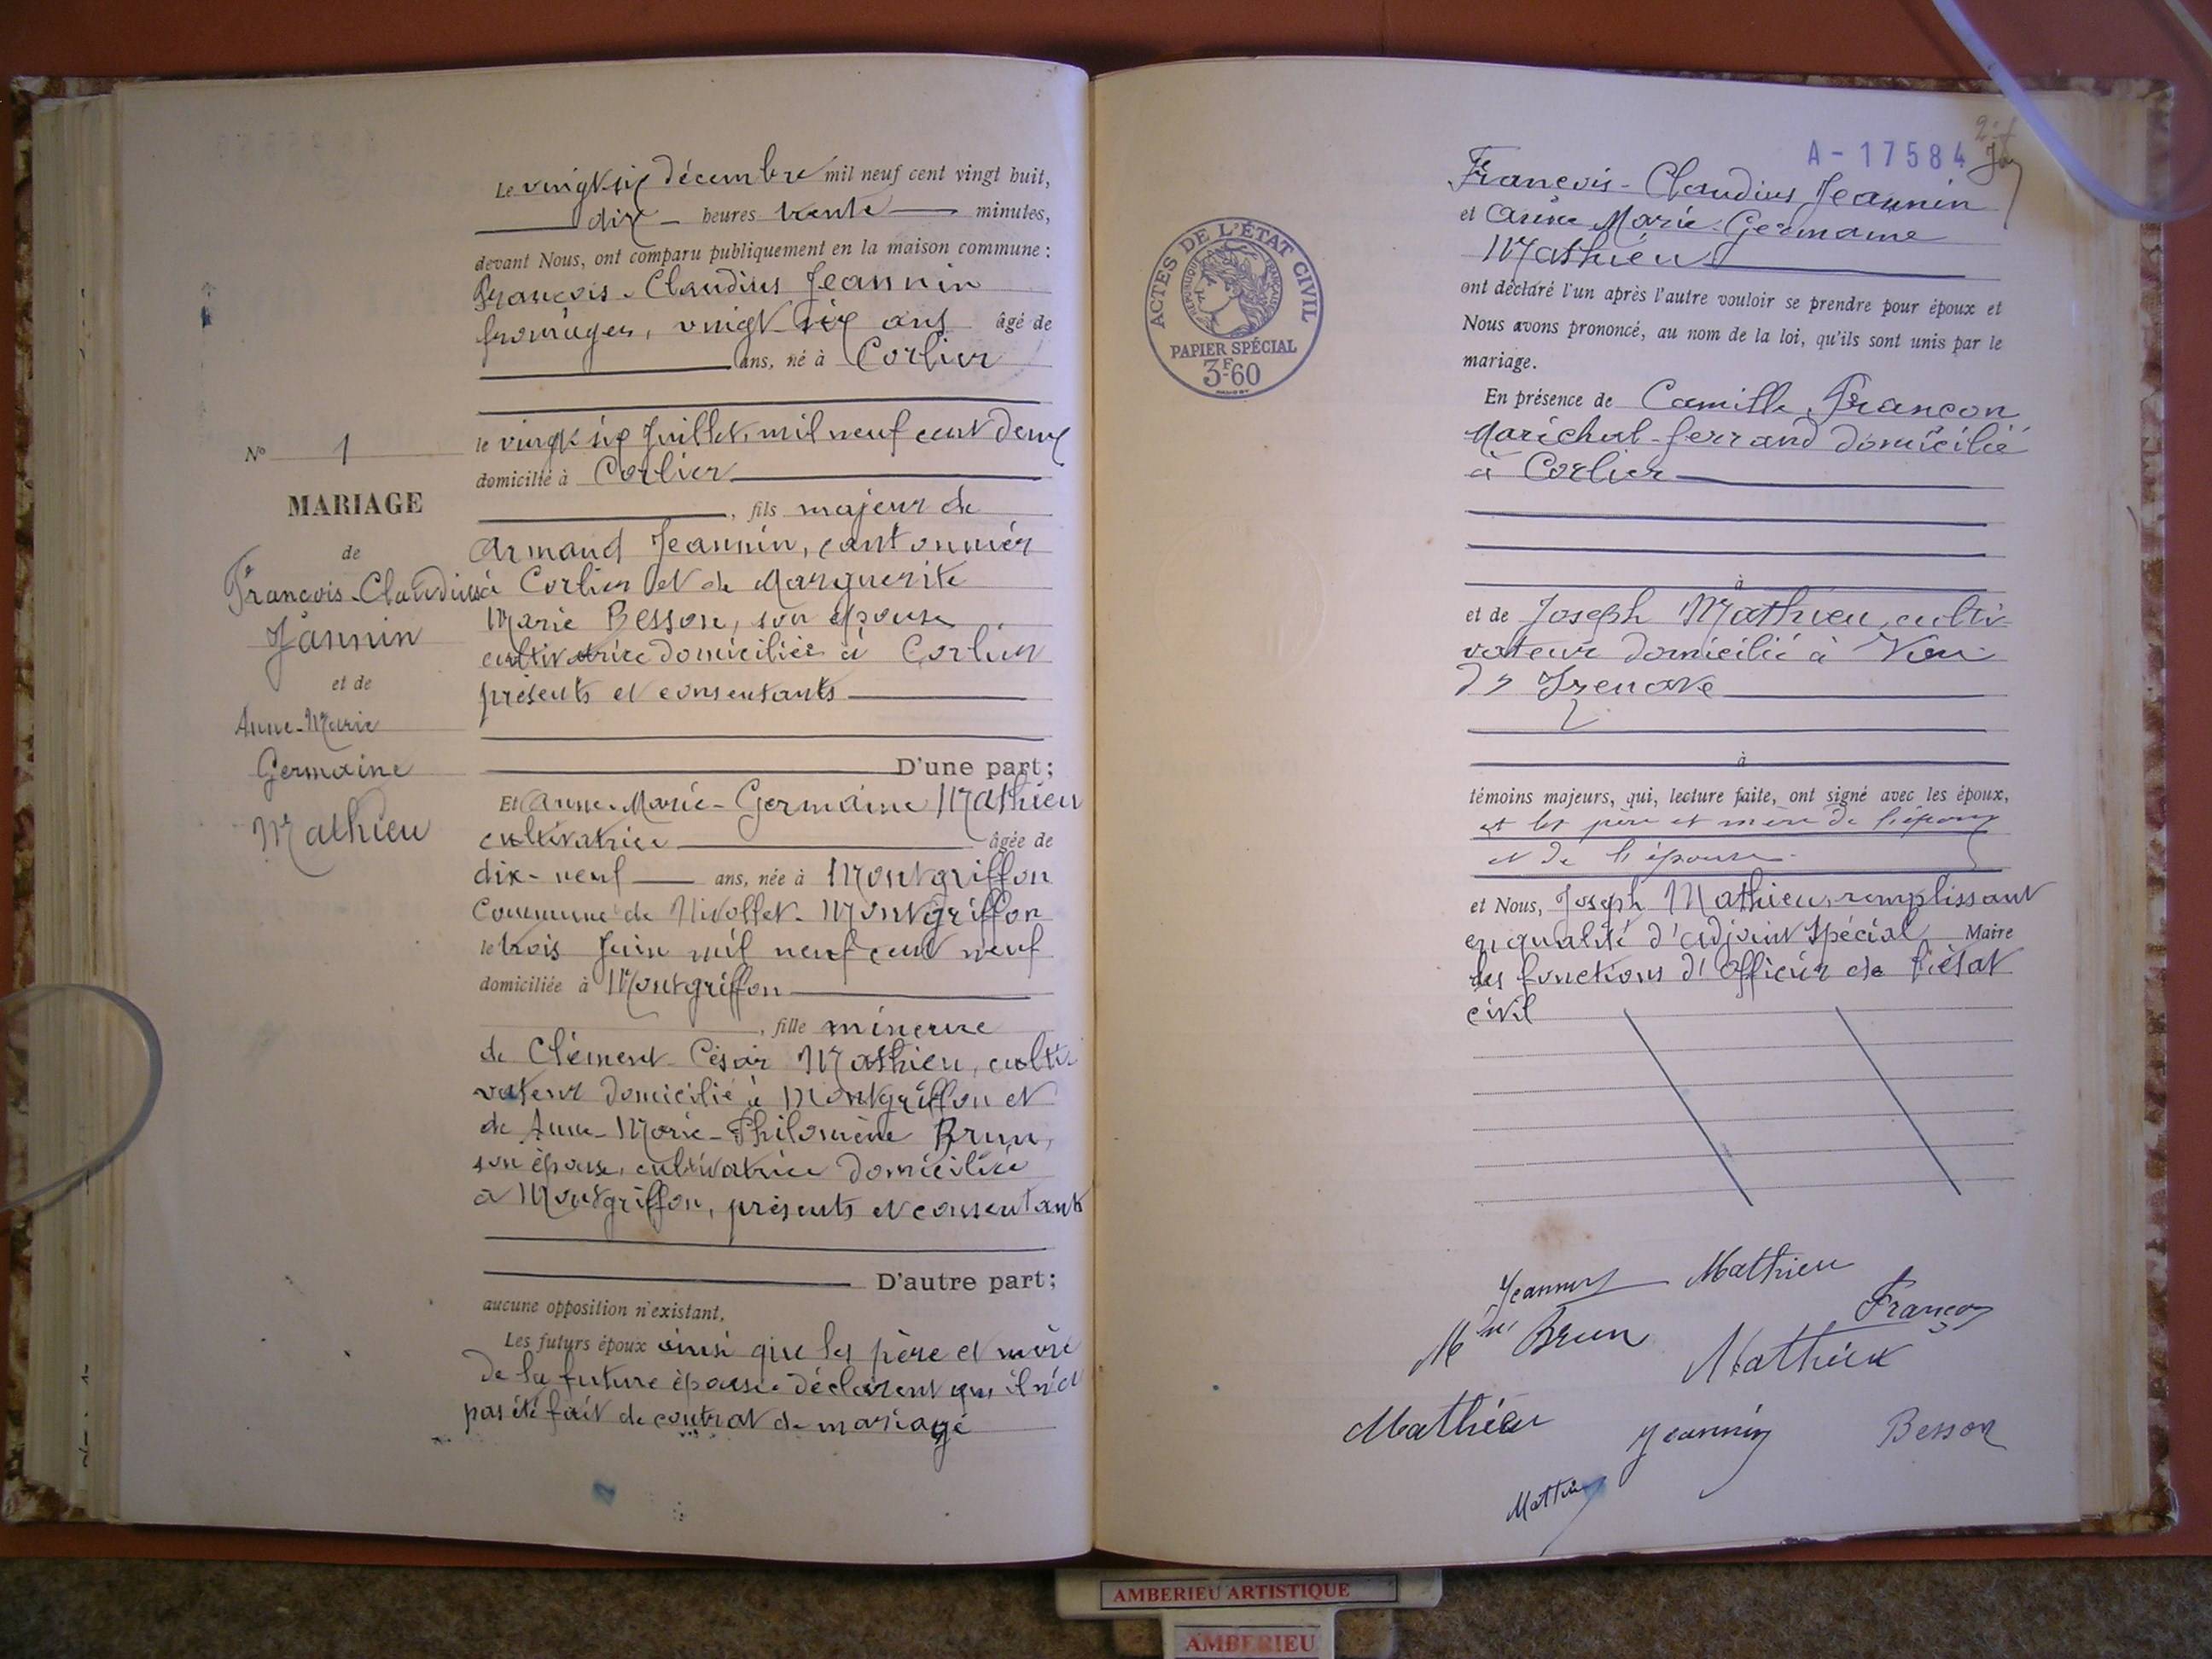 Le vingt-six décembre mil neuf cent vingt huit,
dix heures trente minutes,
devant Nous, ont comparu publiquement en la maison commune :
François-Claudius Jeannin
fromager, vingt six ans âgé de
ans, né à Corlier
le vingt six Juillet mil neuf cent deux
domicilié à Corlier
, fils majeur de
Armand Jeannin, cantonnier
à Corlier et de Marguerite
Marie Besson, son épouse
cultivatrice domiciliée à Corlier
présents et consentants
D'une part ;
Et Anne-Marie-Germaine Mathieu
cultivatrice âgée de
dix-neuf ans, née à Montgriffon
Commune de Nivollet-Montgriffon
le trois Juin mil neuf cent neuf
domiciliée à Montgriffon
, fille mineure
de Clément-César Mathieu, culti-
vateur domicilié à Montgriffon et
de Anne-Marie-Philomène Brun,
son épouse, cultivatrice domiciliée
à Montgriffon, présents et consentants
D'autre part ;
aucune opposition n'existant,
Les futurs époux ainsi que les père et mère
de la future épouse déclarent qu'il n'a
pas été fait de contrat de mariage
N° 1
MARIAGE
de
François-Claudius
Jannin
et de
Anne-Marie
Germaine
Mathieu
A-17584
François-Claudius Jeannin
et Anne Marie-Germaine
Mathieu
ont déclaré l'un après l'autre vouloir se prendre pour époux et
Nous avons prononcé, au nom de la loi, qu'ils sont unis par le
mariage.
En présence de Camille Françon
Maréchal-ferrand domicilié
à Corlier
à
et de Joseph Mathieu, culti-
vateur domicilié à Vieu
d'Izenave
à
témoins majeurs, qui, lecture faite, ont signé avec les époux,
et les père et mère de l'époux
et de l'épouse.
et Nous, Joseph Mathieu, remplissant
en qualité d'adjoint spécial Maire
les fonctions d'Officier de l'état
civil
Jeannin Mathieu
Brun Françon
Mathieu
Mathieu Jeannin Besson
Mathieu
ACTES DE L'ÉTAT CIVIL
RÉPUBLIQUE FRANÇAISE
PAPIER SPÉCIAL
3F.60
AMBERIEU ARTISTIQUE
AMBERIEU